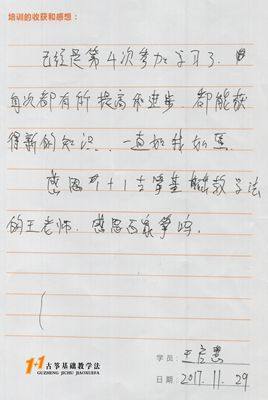 培训的收获和感想：
已经是第4次参加学习了，
每次都有所提高和进步，都能获
得新的知识，一直如我如
感恩 1+1古筝基础教学法
的王老师，感恩百家筝鸣。
1+1 古筝基础教学法
GUZHENG JICHU JIAOXUEFA
学员：王
日期：2017.11.29